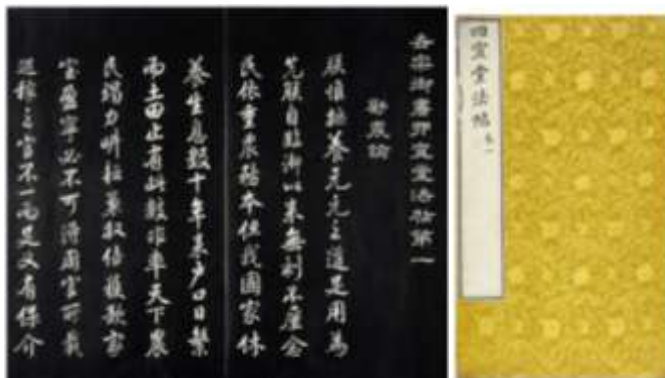 世宗御書四宜堂法帖第一
勸農諭
朕惟撫養元元之道足用為
先朕自臨御以來無刻不廑念
民依重農務本但我國家休
養生息數十年來戶口日繁
而土田止有此數非率天下農
民竭力耕耘兼收倍穫欲家
室盈寧必不可得周官所載
巡稼之官不一而足又有保介
四宜堂法帖 卷一